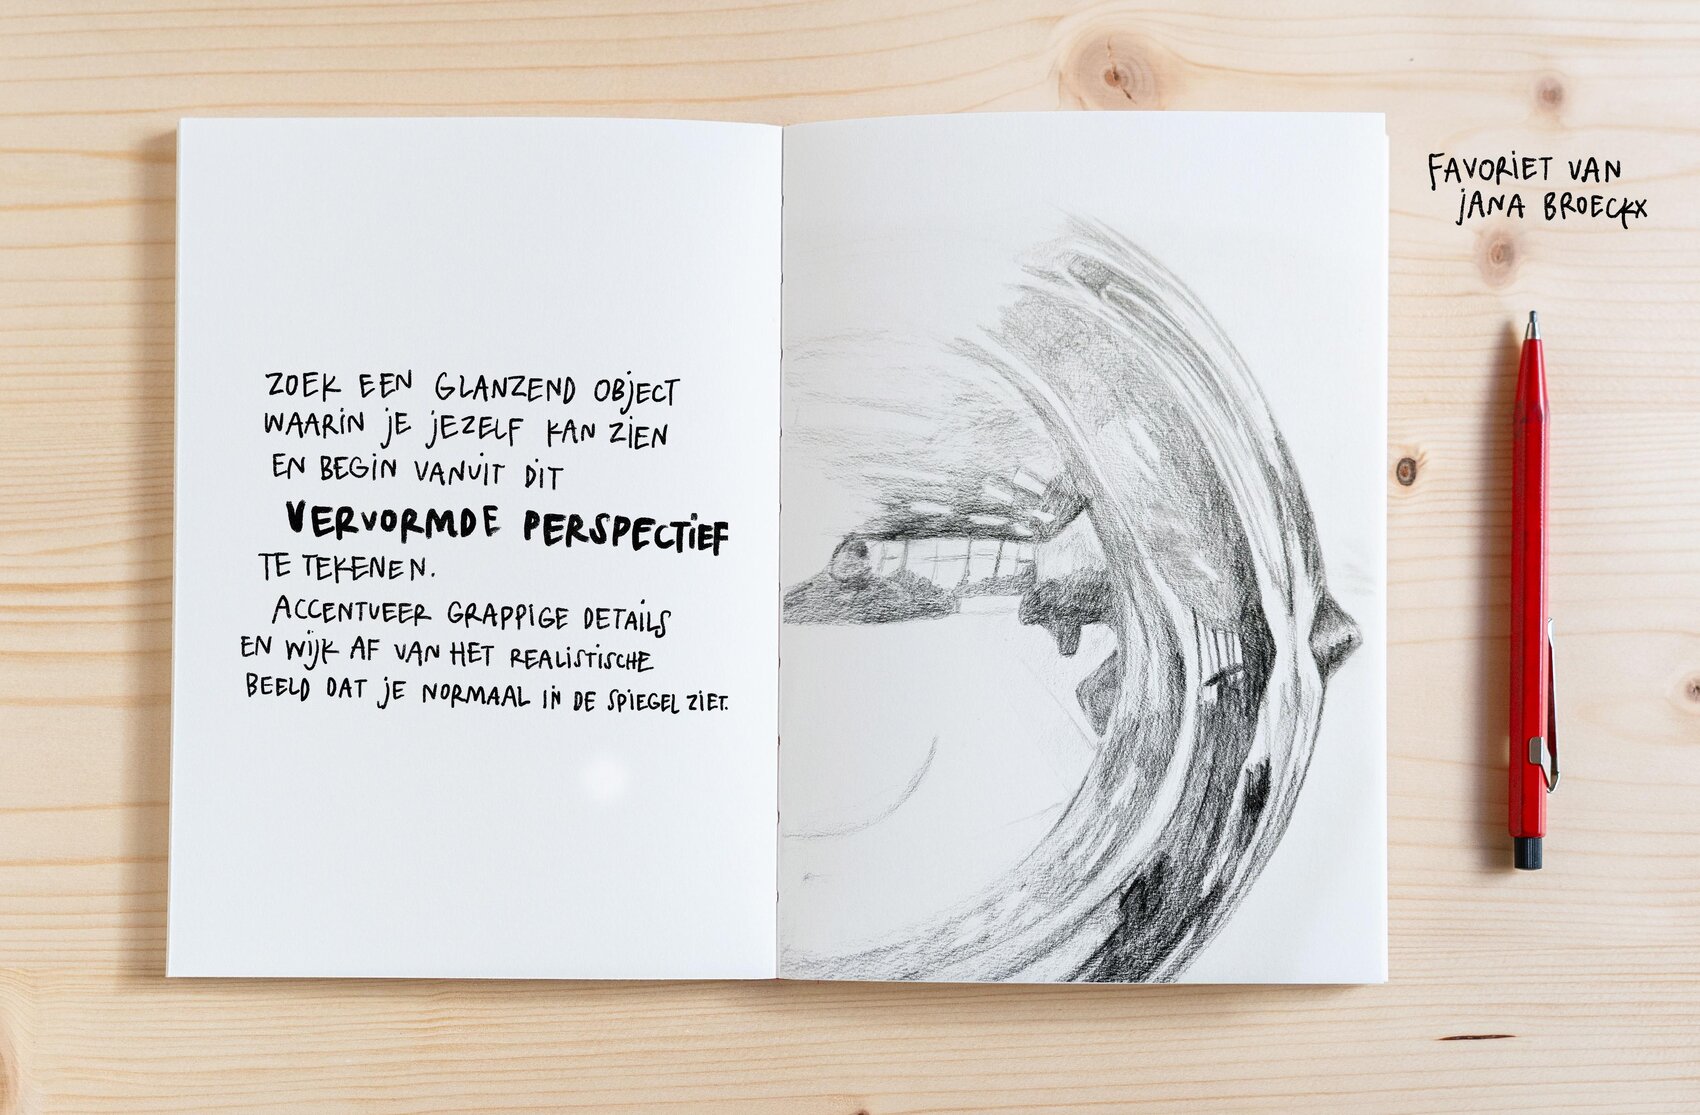 ZOEK EEN GLANZEND OBJECT
WAARIN JE JEZELF KAN ZIEN
EN BEGIN VANUIT DIT
VERVORMDE PERSPECTIEF
TE TEKENEN.
ACCENTUEER GRAPPIGE DETAILS
EN WIJK AF VAN HET REALISTISCHE
BEELD DAT JE NORMAAL IN DE SPIEGEL ZIET.
FAVORIET VAN
JANA BROECKX